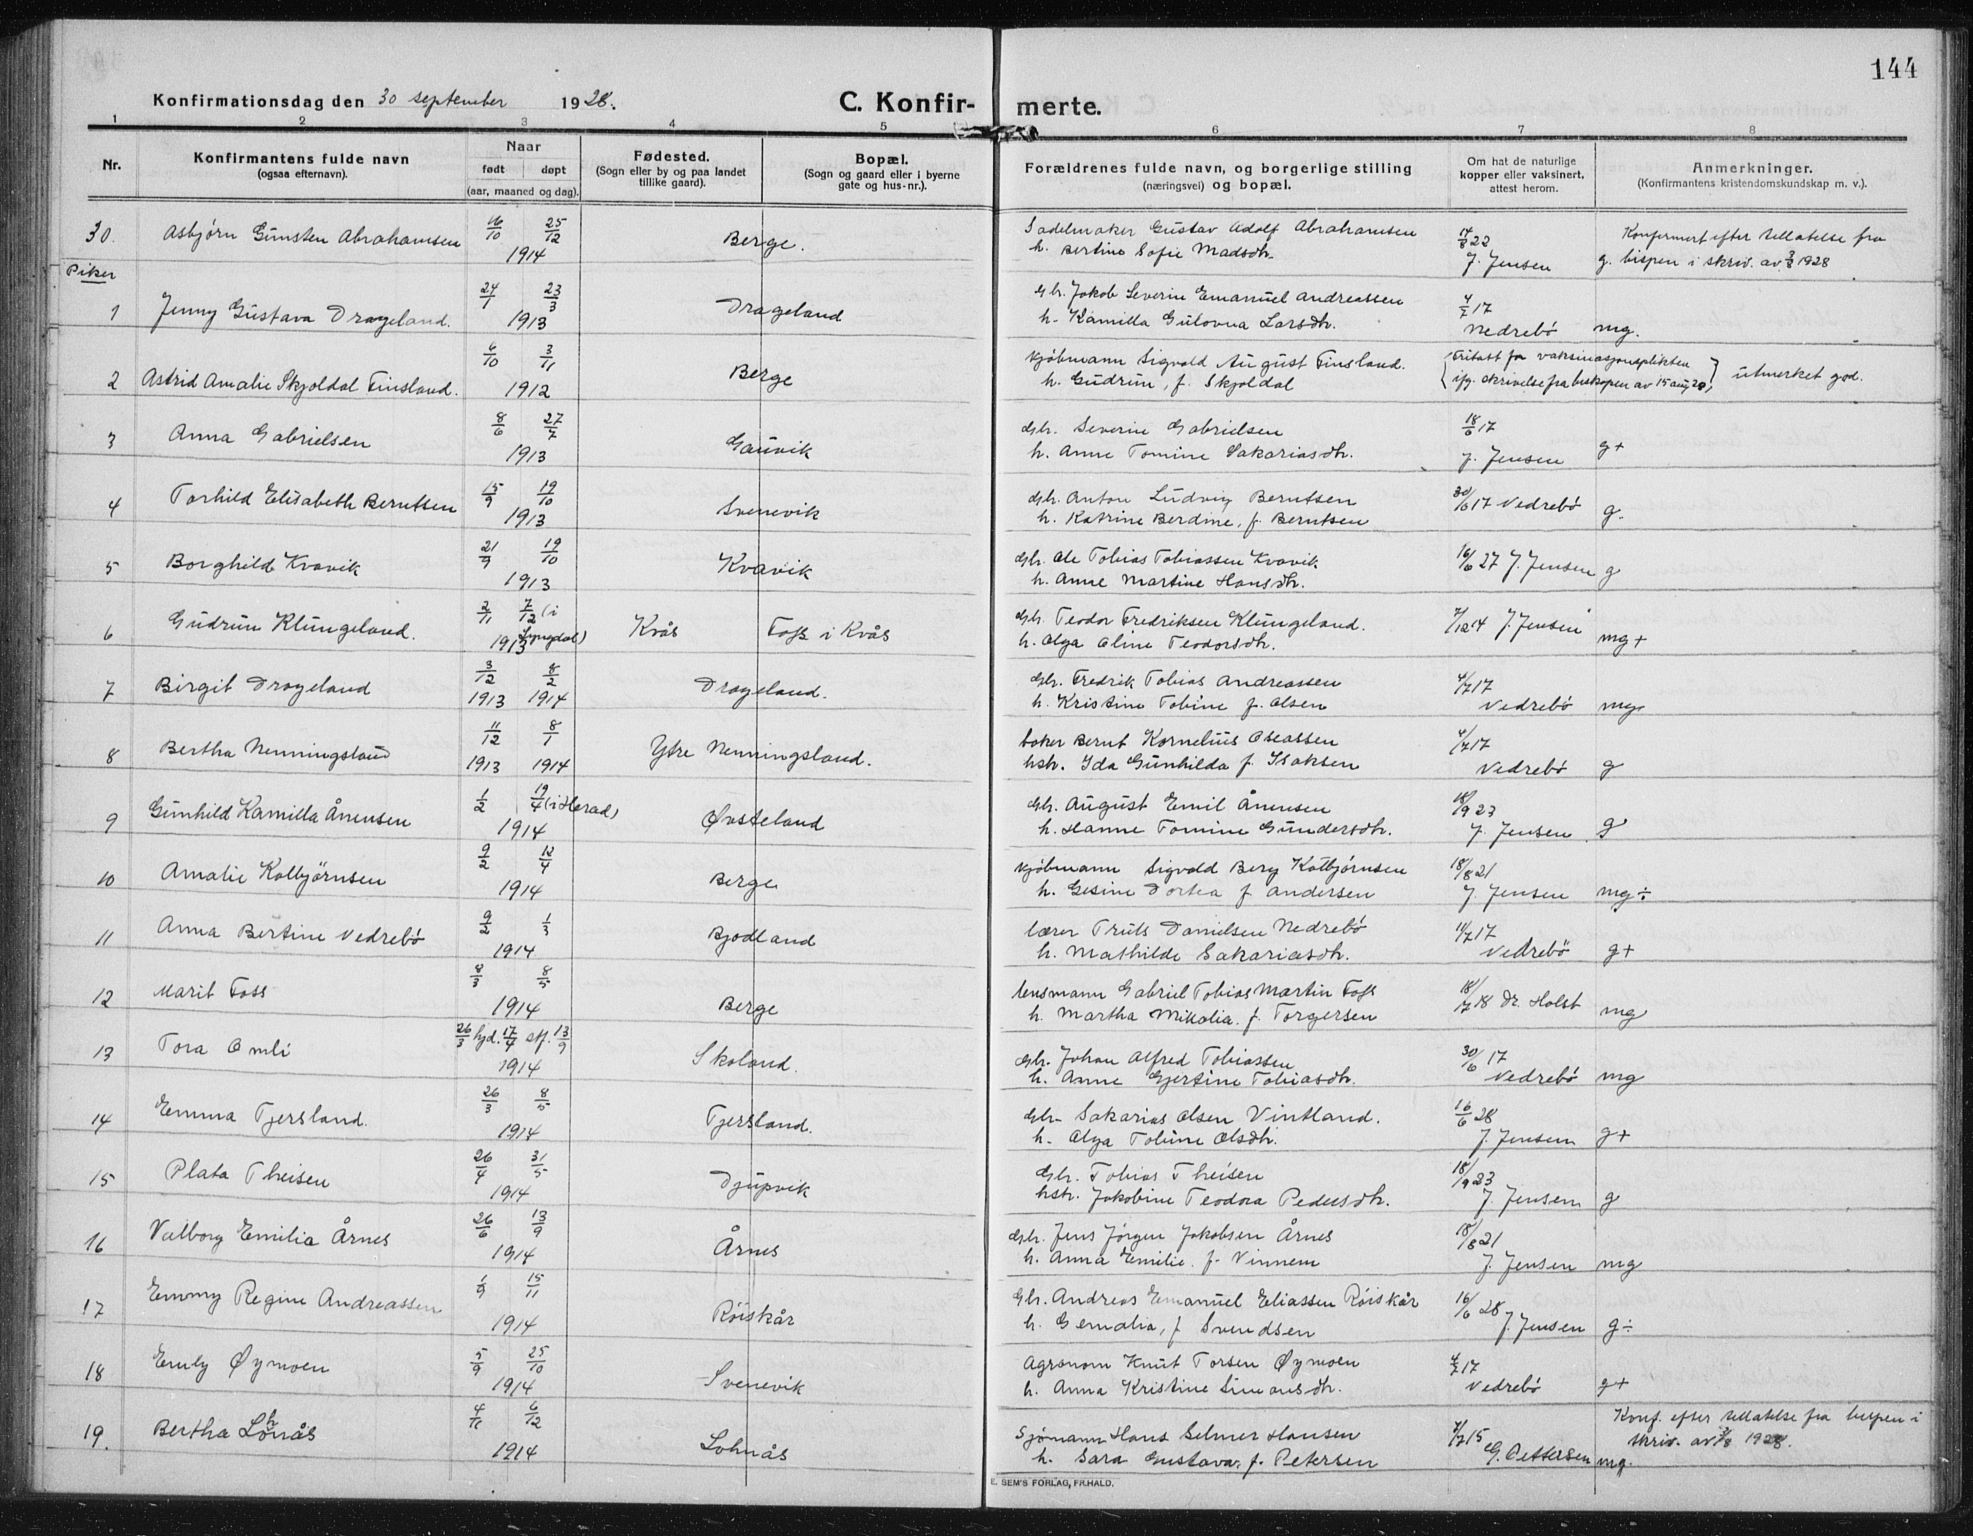 144
Konfirmationsdag den 30 september 1928.
C. Konfirmerte.
1 2 3 4 5 6 7 8
Nr.
Konfirmantens fulde navn
(ogsaa efternavn).
Naar
født døpt
(aar, maaned og dag).
Fødested.
(Sogn eller by og paa landet
tillike gaard).
Bopæl.
(Sogn og gaard eller i byerne
gate og hus-nr.).
Forældrenes fulde navn, og borgerlige stilling
(næringsvei) og bopæl.
Om hat de naturlige
kopper eller vaksinert,
attest herom.
Anmerkninger.
(Konfirmantens kristendomskundskap m. v.).
30. Asbjørn Gunsten Abrahamsen 16/10 25/12 1914 Berge.
Sadelmaker Gustav Adolf Abrahamsen
h. Bertine Sofie Madsdtr.
17/8 22 J. Jensen
Konfermert efter tillatelse fra
g. bispen i skriv. av 3/8 1928
Piker
1 Jenny Gustava Drageland. 24/1 23/3 1913 Drageland
Gbr. Jakob Severin Emanuel Andreassen
h. Kamilla Gulovna Larsdtr.
4/7 17 Nedrebö mg.
2 Astrid Amalie Skjoldal Finsland. 6/10 3/11 1912 Berge
Kjøbmann Sigvald August Finsland.
h. Gudrun, f. Skjoldal
Fritatt for vaksinasjonsplikten
ifg. skrivelse fra biskopen av 15 aug. 28
utmerket god.
3 Anna Gabrielsen 8/6 27/7 1913 Gauvik
Gbr. Severin Gabrielsen
h. Anne Tomine Sakariasdtr.
18/6 17 J. Jensen g+
4 Torhild Elisabeth Berntsen 15/9 19/10 1913 Svenevik
Gbr. Anton Ludvig Berntsen
h. Katrine Berdine, f. Berntsen
30/6 17 Vedrebö g.
5 Borghild Kvavik 21/9 19/10 1913 Kvavik
Gbr. Ole Tobias Tobiassen Kvavik
h. Anne Martine Hansdtr.
16/6 27 J. Jensen g
6 Gudrun Klungeland. 2/11 7/12 (i Lyngdal) 1913 Kvås Foss i Kvås
Gbr. Teodor Fredriksen Klungeland.
h. Olga Oline Teodorsdtr.
7/12 4 J. Jensen mg+
7 Birgit Drageland 3/12 1913 8/2 1914 Drageland.
Gbr. Fredrik Tobias Andreassen
h. Kristine Tobine f. Olsen
4/7 17 Vedrebö mg
8 Bertha Nenningsland 11/12 1913 8/1 1914 Ytre Nenningsland.
baker Bernt Kornelius Oseassen
hstr. Ida Gunhilda f. Isaksen
4/7 17 Vedrebö g
9 Gunhild Kamilla Ånensen 1/2 19/4 (i Herad) 1914 Øvsteland
Gbr. August Emil Ånensen
h. Hanne Tomine Gundersdtr.
18/9 23 J. Jensen g
10 Amalie Kolbjörnsen 9/2 12/4 1914 Berge
Kjøbmann Sigvald Berg Kolbjørnsen
h. Gesine Dortea f. Andersen
18/8 21 J. Jensen mg÷
11 Anna Bertine Vedrebö 9/2 1/3 1914 Bjodland
lærer Truls Danielsen Nedrebö
h. Mathilde Sakariasdtr.
11/7 17 Vedrebö g+
12 Marit Foss 8/3 8/5 1914 Berge
lensmann Gabriel Tobias Martin Foss
h. Martha Mikalia f. Torgersen
18/7 18 Dr. Holst mg
13 Tora Omli 26/3 hjd. 17/4 stf. 13/9 1914 Skoland.
Gbr. Johan Alfred Tobiassen
h. Anne Gjertine Tobiasdtr.
30/6 17 Vedrebö mg
14 Emma Tjersland. 26/3 8/5 1914 Tjersland.
Gbr. Sakarias Olsen Vintland.
h. Olga Tobine Olsdtr.
16/6 28 J. Jensen g+
15 Plata Theisen 26/4 31/5 1914 Djupvik
Gbr. Tobias Theisen
hstr. Jakobine Teodora Pedersdtr.
18/9 23 J. Jensen g
16 Valborg Emilia Årnes 26/6 13/9 1914 Årnes
Gbr. Jens Jørgen Jakobsen Årnes
h. Anna Emilie f. Vinnem
18/8 21 J. Jensen mg
17 Emmy Regine Andreassen 1/9 15/11 1914 Röiskår
Gbr. Andreas Emanuel Eliassen Röiskår
h. Gemalia, f Svendsen
16/6 28 J. Jensen g÷
18 Emly Øymoen 5/9 25/10 1914 Svenevik
Agronom Knut Torsen Øymoen
h. Anna Kristine Simonsdtr.
4/7 17 Vedrebö g+
19. Bertha Lohnås 4/11 6/12 1914 Lohnås
Sjömann Hans Selmer Hansen
h. Sara Gustava f. Petersen
7/7 15 G. Pettersen mg.
Konf. efter tillatelse fra bispen i
skriv. av 3/8 1928.
E. SEM'S FORLAG, FR.HALD.